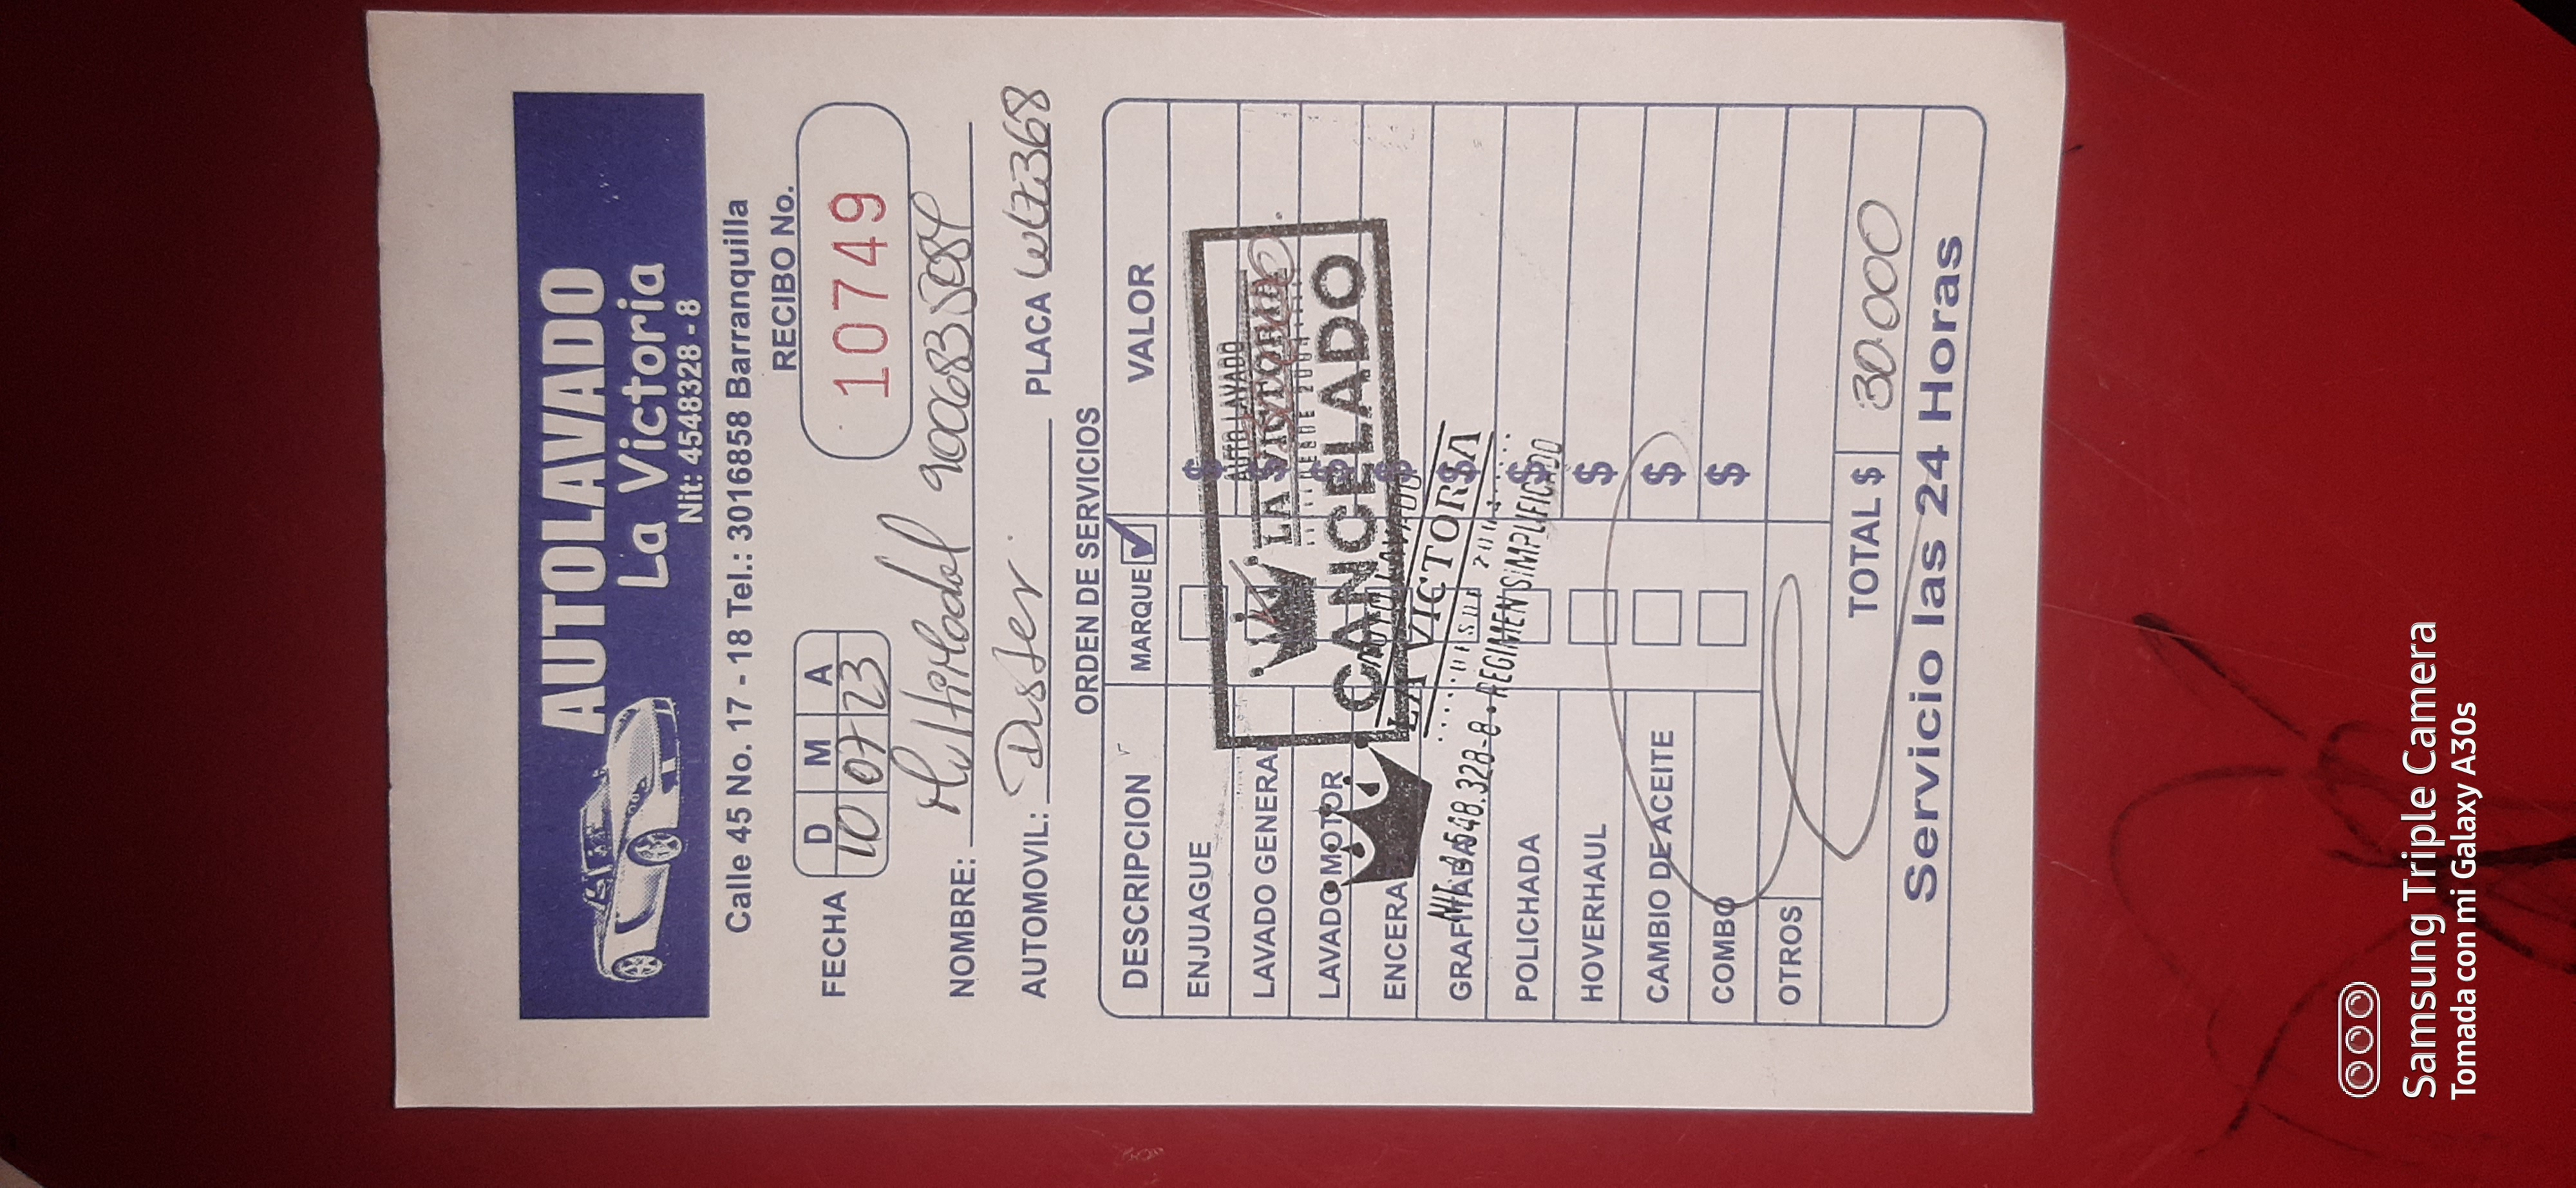 AUTOLAVADO
La Victoria
Nit: 45483328 - 8
Calle 45 No. 17 - 18 Tel.: 3016858 Barranquilla
RECIBO No.
FECHA D M A
10 07 23
10749
NOMBRE: Multimodal 900683508
AUTOMOVIL: PLACA 368
ORDEN DE SERVICIOS
DESCRIPCION MARQUE VALOR
ENJUAGUE $
LAVADO GENERAL $
LAVADO MOTOR $
ENCERA $
GRAFITADA $
POLICHADA $
HOVERHAUL $
CAMBIO DE ACEITE $
COMBO $
OTROS
TOTAL $ 30.000
Servicio las 24 Horas
AUTO LAVADO
LA VICTORIA
DESDE 2004
CANCELADO
LA VICTORIA
NIT. 45.548.328-8 • REGIMEN SIMPLIFICADO
Samsung Triple Camera
Tomada con mi Galaxy A30s